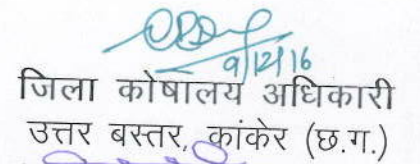 9/12/16
जिला कोषालय अधिकारी
उत्तर बस्तर, कांकेर (छ.ग.)